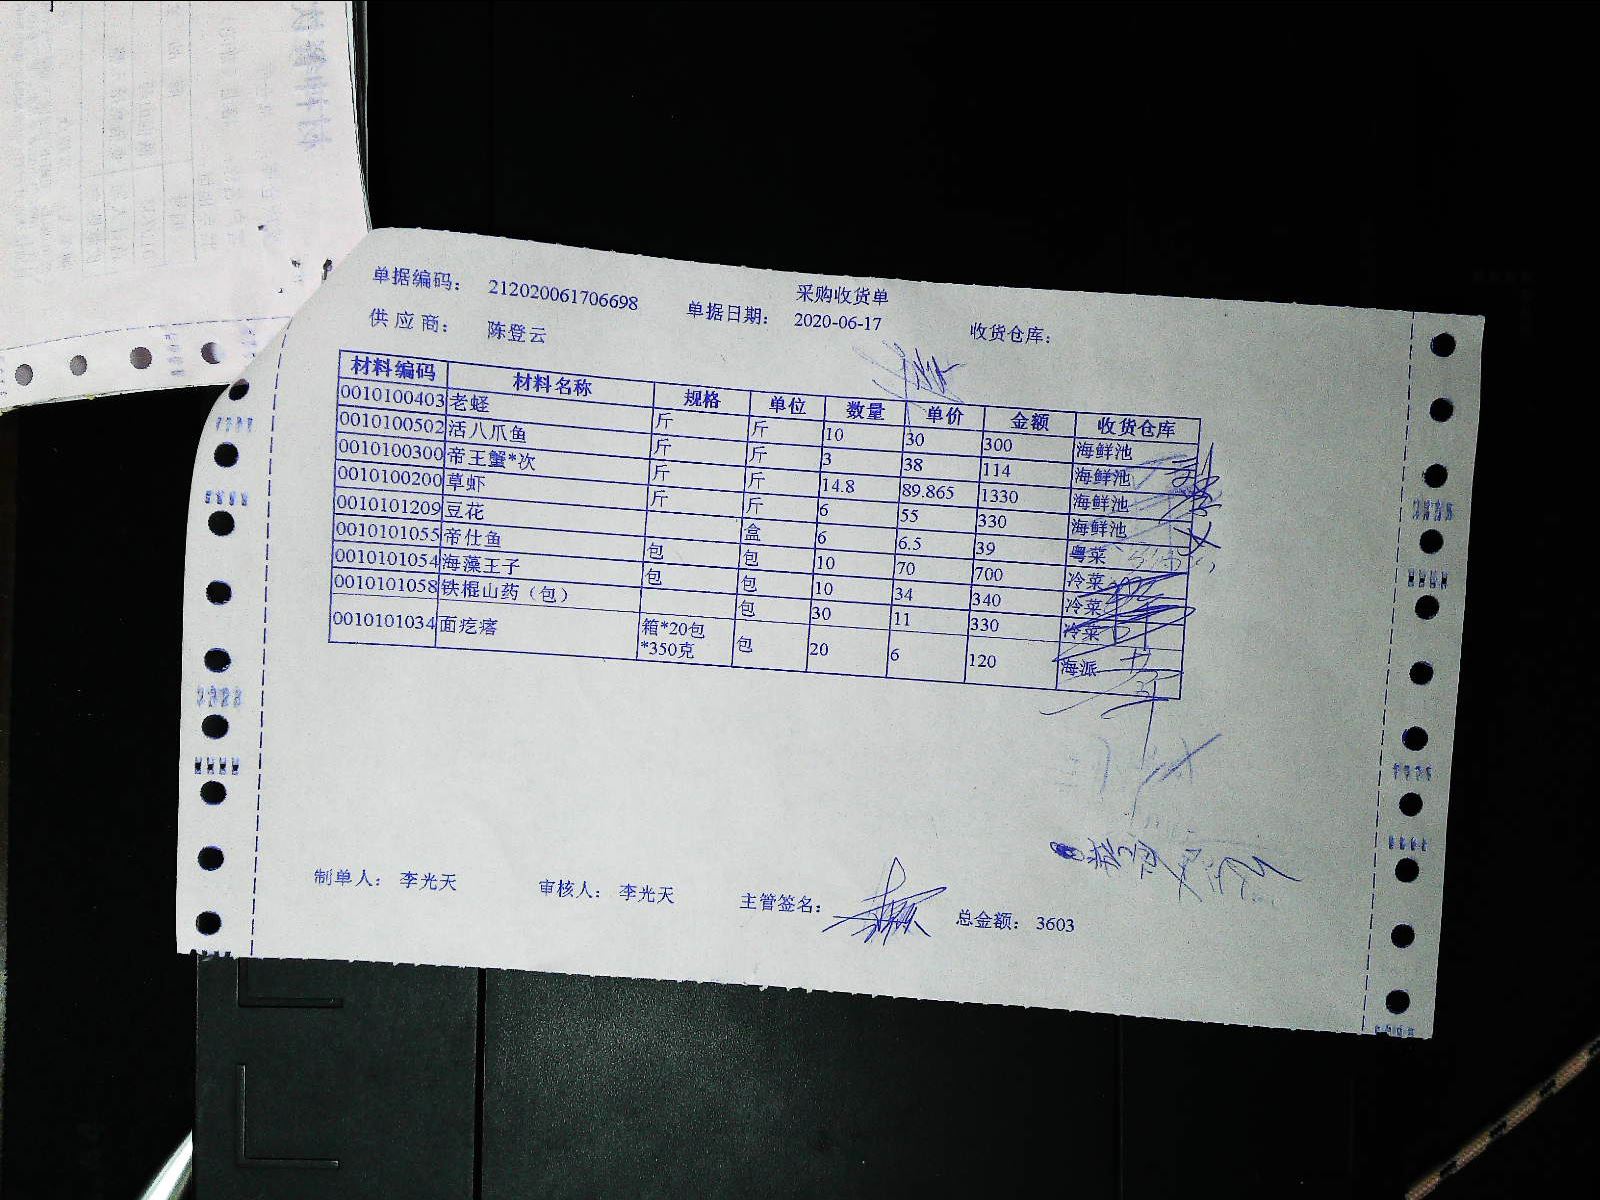 采购收货单
单据编码： 212020061706698 单据日期： 2020-06-17 收货仓库：
供应商： 陈登云
材料编码 材料名称 规格 单位 数量 单价 金额 收货仓库
0010100403 老蛏 斤 斤 10 30 300 海鲜池
0010100502 活八爪鱼 斤 斤 3 38 114 海鲜池
0010100300 帝王蟹*次 斤 斤 14.8 89.865 1330 海鲜池
0010100200 草虾 斤 斤 6 55 330 海鲜池
0010101209 豆花 盒 6 6.5 39 粤菜
0010101055 帝仕鱼 包 包 10 70 700 冷菜
0010101054 海藻王子 包 包 10 34 340 冷菜
0010101058 铁棍山药（包） 包 30 11 330 冷菜
0010101034 面疙瘩 箱*20包*350克 包 20 6 120 海派
制单人： 李光天 审核人： 李光天 主管签名： 总金额： 3603